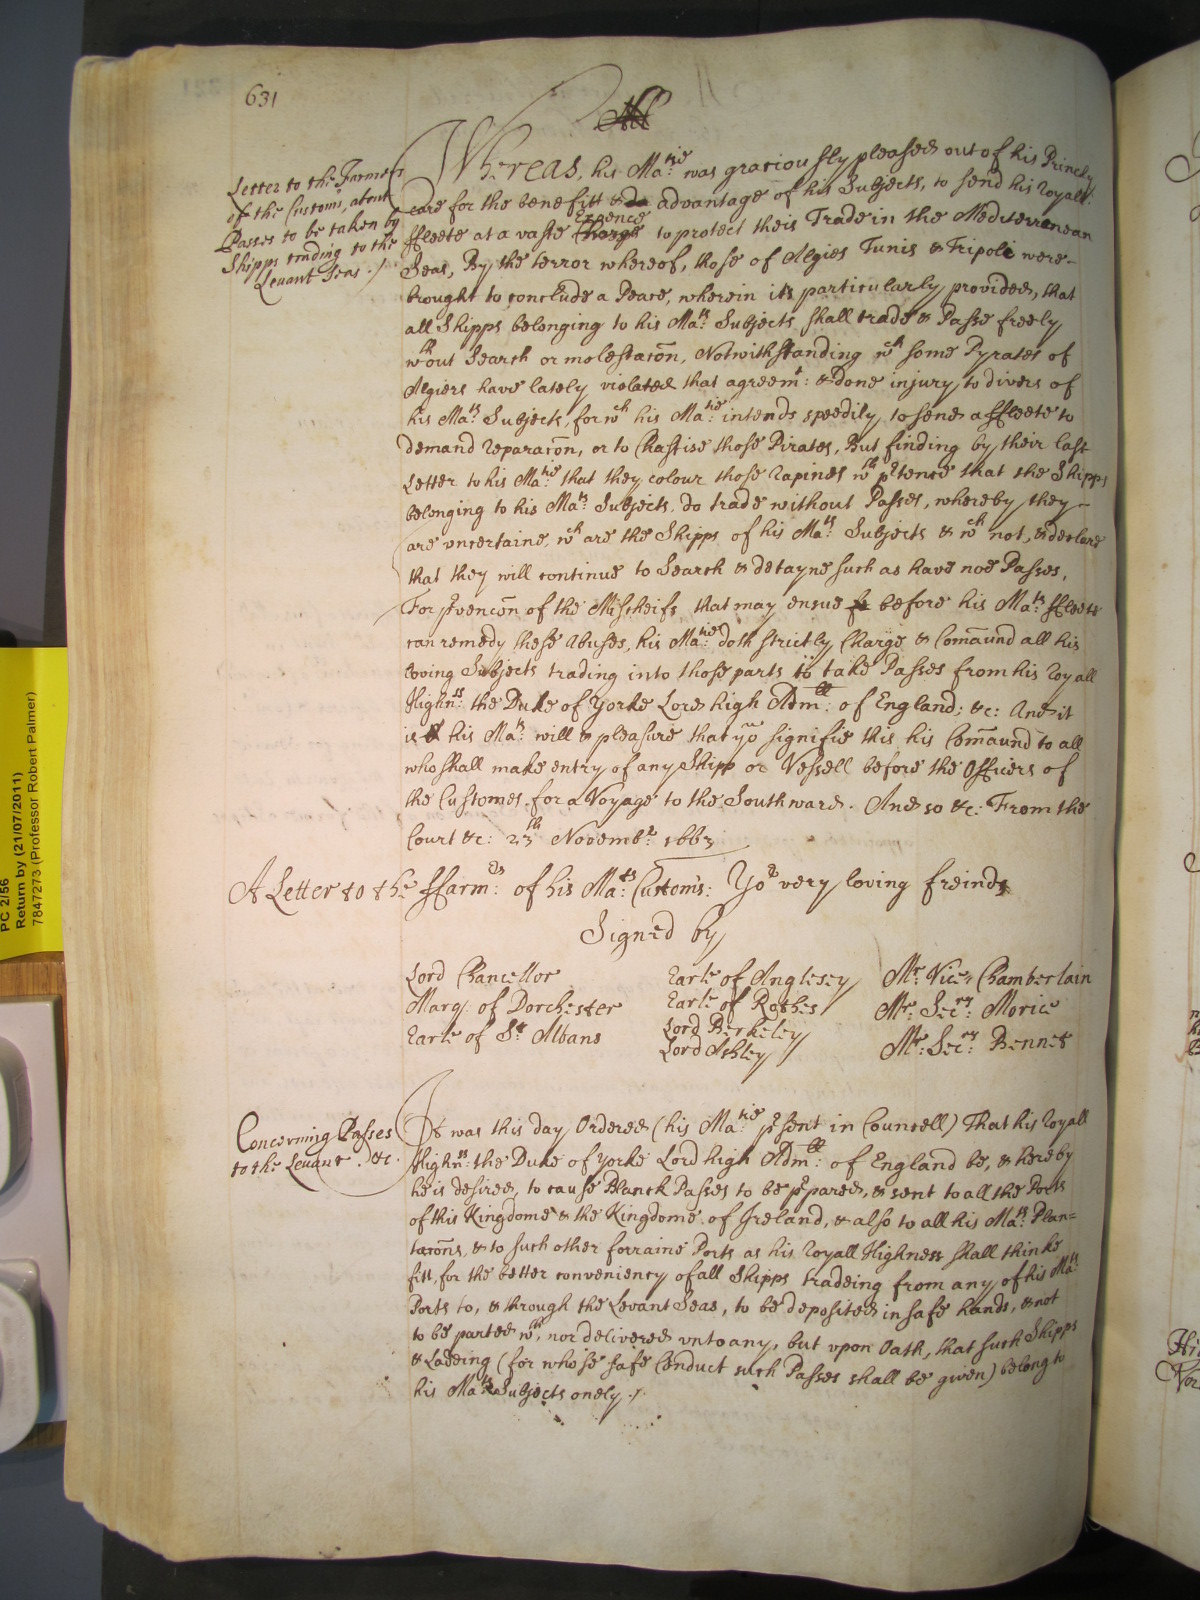 631
Letter to the Farmers
of the Customs, about
Passes to be taken by
Shipps tradeing to the
Levant Seas ./
Whereas, his Ma:tie was graciously pleased out of his Princely
care for the benefitt & advantage of his Subjects, to send his royall
ffleete at a vaste Charge Expence to protect their Trade in the Mediterranean
Seas, By the terror whereof, those of Algies Tunis & Tripoli were-
brought to conclude a Peace, wherein its particularly provided, that
all Shipps belonging to his Ma:ts Subjects, shall trade & Passe freely
wth out Search or molestacōn, Notwithstanding wch some Pyrates of
Algiers have lately violated that agreemt: & done injury to divers of
his Ma:ts Subjects, for wch his Ma:tie intends speedily, to send a ffleete to
demand reparacōn, or to Chastise those Pirates, But finding by their last
Letter to his Ma:tie that they colour those rapines wth ptence that the Shipps
belonging to his Ma:ts Subjects, do trade without Passes, whereby they-
are uncertaine, wch are the Shipps of his Ma:ts Subjects & wch not, & declare
that they will continue to Search & detayne such as have noe Passes,
For pvencōn of the Mischeifs, that may ensue before his Ma:ts ffleete
can remedy these Abuses, his Ma:tie doth strictly Charge & Comāund all his
loving Subjects trading into those parts to take Passes from his royall
Highn:ss the Duke of Yorke Lord high Adm:ll of England; &c: And it
is his Ma:ts will & pleasure that you signifie this his Comāund to all
who shall make entry of any Shipp or Vessell before the Officers of
the Customes for a Voyage to the Southward. And so &c: From the
Court &c: 23th Novembr 1663
A Letter to the ffarm:ers of his Ma:ts Customs: Yor very loving freinds
Signed by
Lord Chancellor
Marq: of Dorchester
Earle of St Albans
Earle of Anglesey
Earle of Rothes
Lord Berkeley
Lord Ashley
Mr. Vice, Chamberlain
Mr. Sec:ry Morice
Mr: Sec:ry Bennet
Concerning Passes
to the Levant &c.
It was this day Ordered (his Ma:tie psent in Councell) That his Royall
Highn:ss the Duke of Yorke Lord high Adm:ll of England be, & hereby
he is desired, to cause Blanck Passes to be ppared, & sent to all the Ports
of this Kingdome & the Kingdome of Ireland, & also to all his Ma:ts Plan=
tacōns, & to such other forraine Ports as his royall Highness shall thinke
fitt, for the better conveniency of all Shipps tradeing from any of his Ma:ts
Ports to, & through the Levant Seas, to be deposited in safe hands, & not
to be parted wth, nor delivered unto any, but upon Oath, that such Shipps
& Ladeing (for whose safe Conduct such Passes shall be given) belong to
his Ma:ts Subjects onely ./
PC 2/56
Return by (21/07/2011)
7847273 (Professor Robert Palmer)